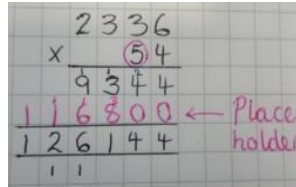 2336
× 54
9344
116800 ← Place holder
126144
11